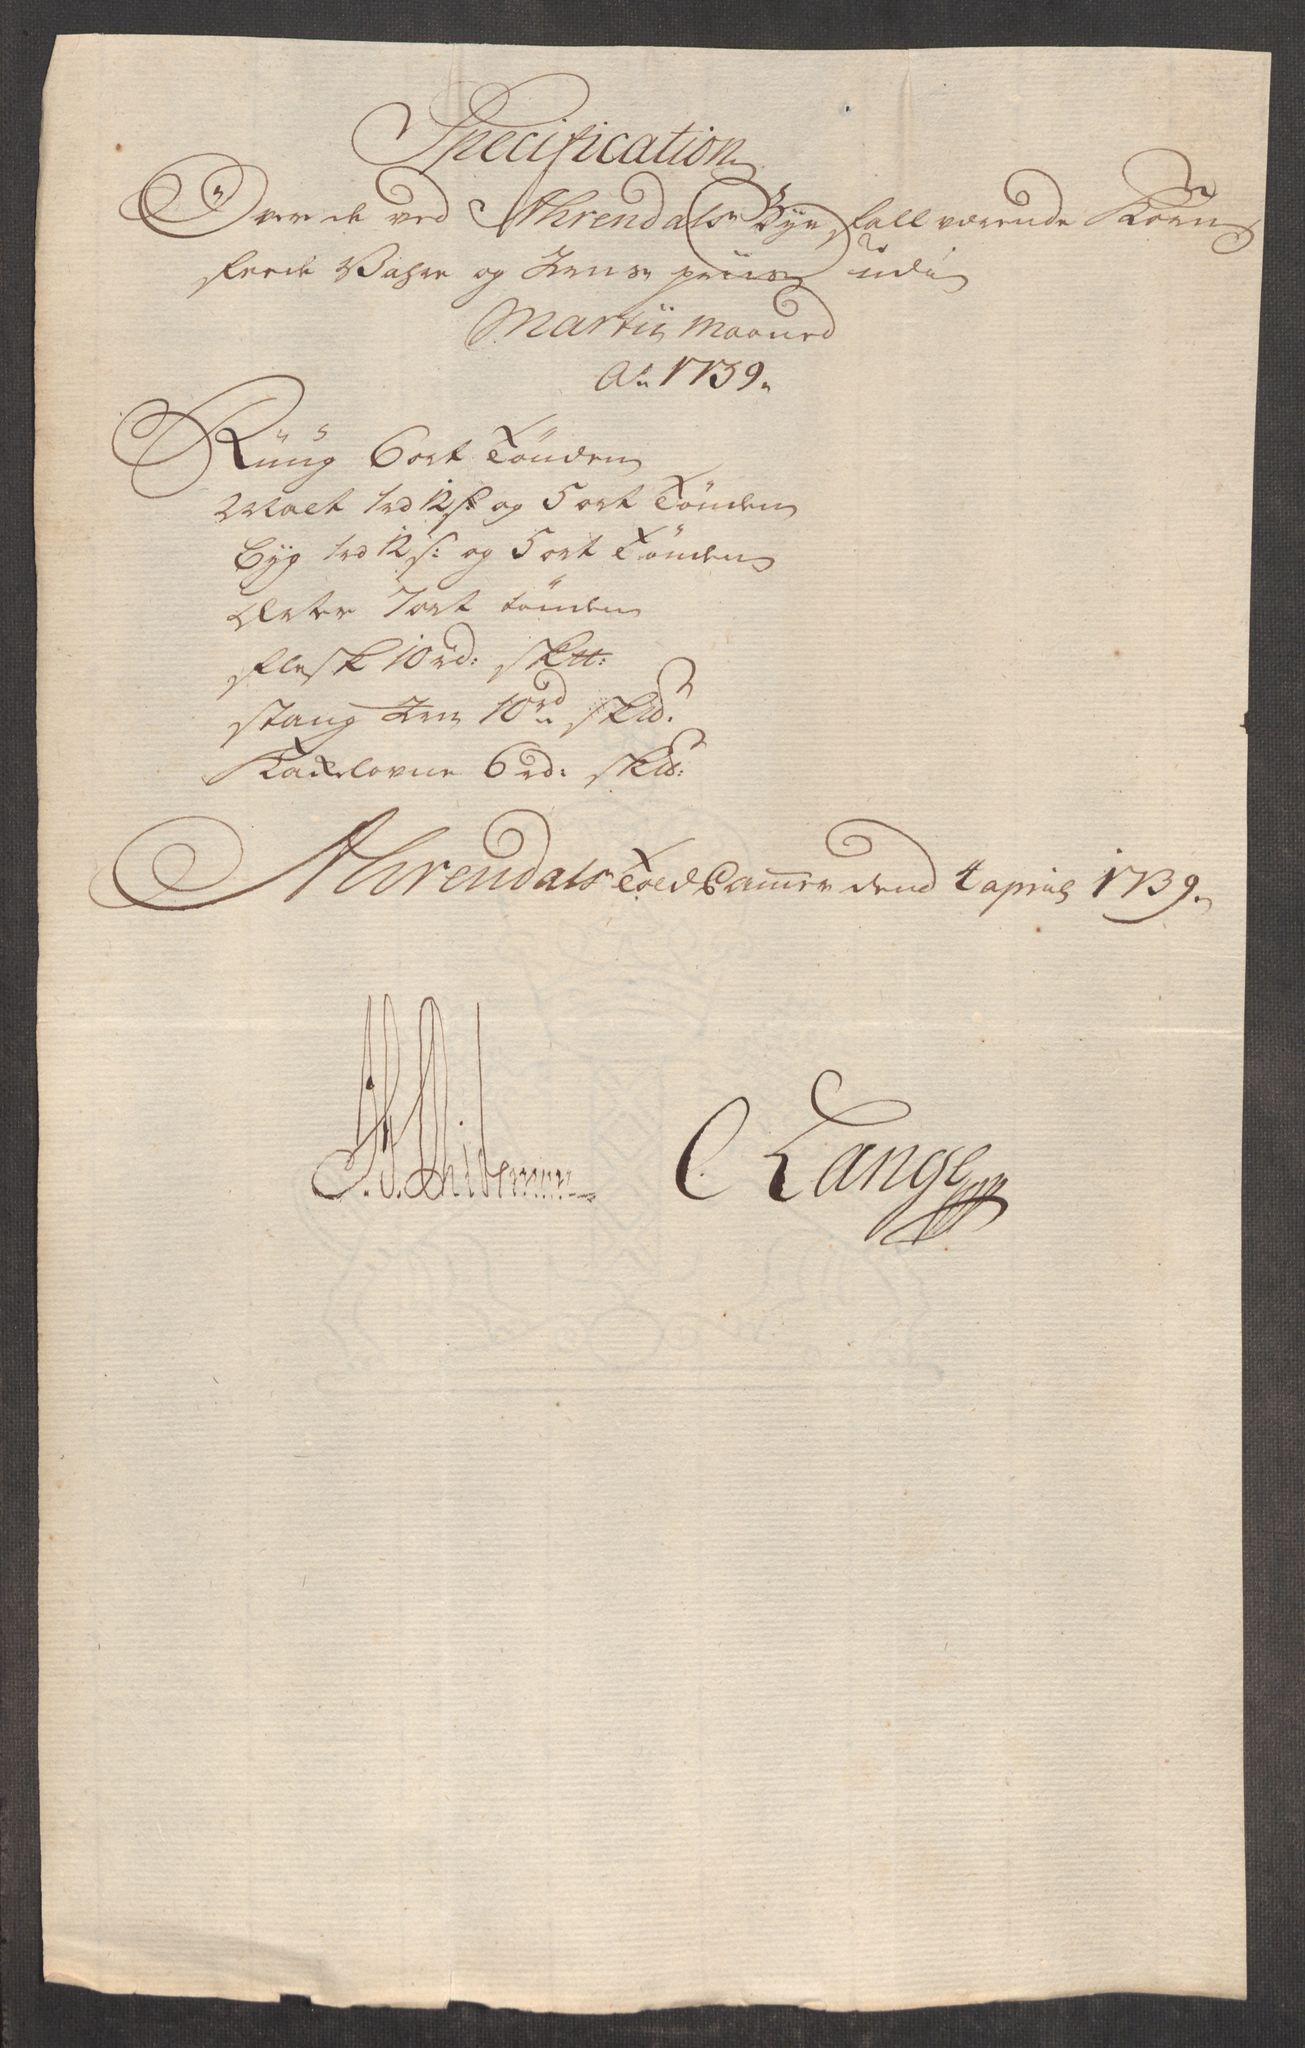 Specification
Over de ved Ahrendals Bye falldværende Korn
feede Vahre og Jerns priis udi
Martii Maaned
Ao 1739.
Rüüg 6 ort Tönden
Malt 1 rd 12 s og 5 ort Tönden
Byg 1 rd 12 s: og 5 ort Tönden
Erter 7 ort tönden
flesk 10 rd: sktt:
stang Jern 10 rd sktt:
Kackelovne 6 rd: sktt:
Ahrendals Told Cammer dend 4 april 1739.
C Lange